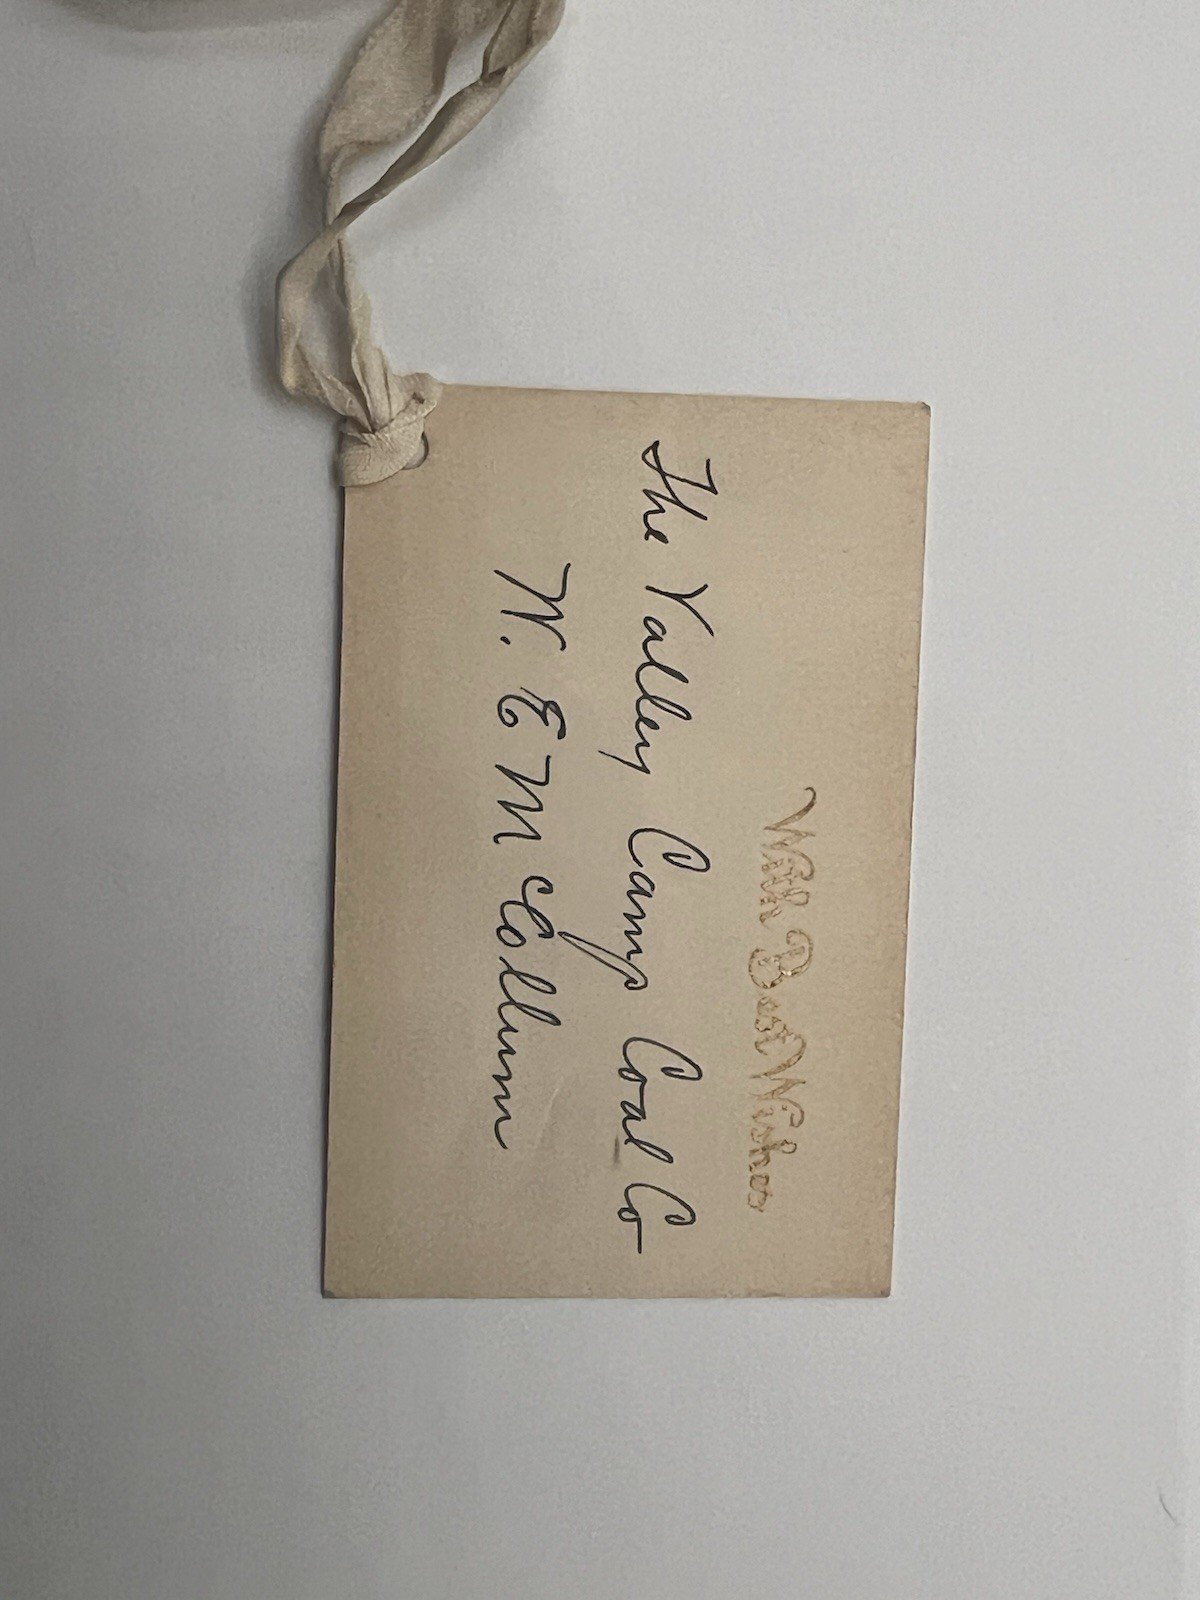 With Best Wishes
The Valley Camp Coal Co
W. E McCollum